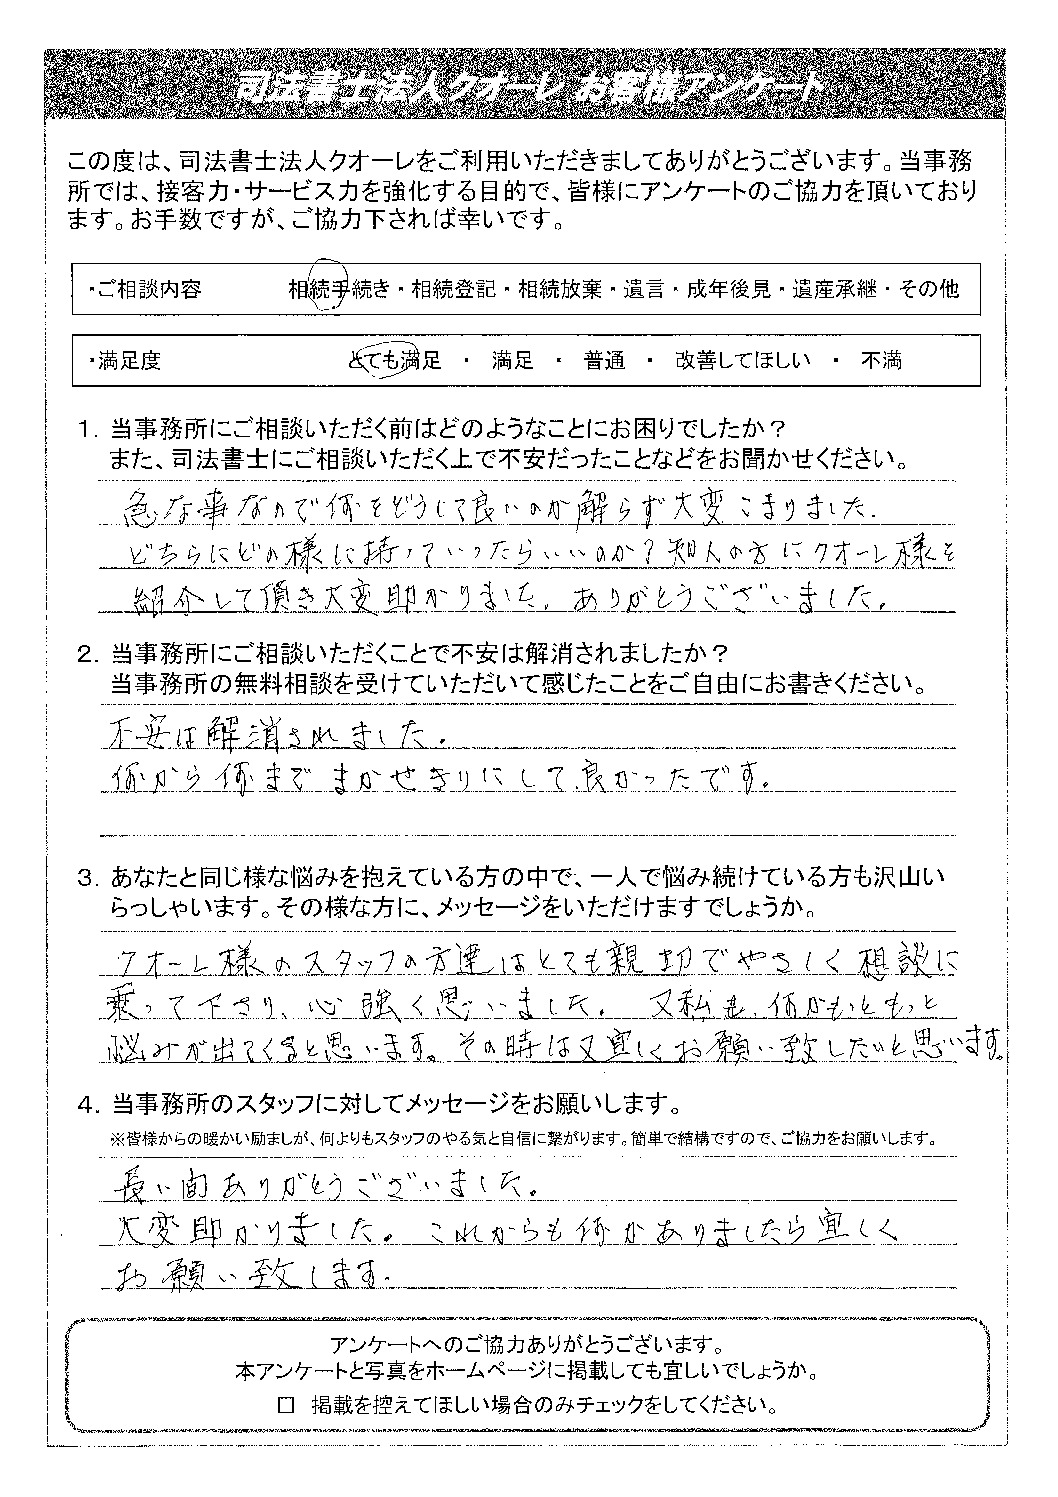 司法書士法人クオーレ お客様アンケート
この度は、司法書士法人クオーレをご利用いただきましてありがとうございます。当事務
所では、接客力・サービス力を強化する目的で、皆様にアンケートのご協力を頂いており
ます。お手数ですが、ご協力下されば幸いです。
・ご相談内容 相続手続き・相続登記・相続放棄・遺言・成年後見・遺産承継・その他
・満足度 とても満足 ・ 満足 ・ 普通 ・ 改善してほしい ・ 不満
1. 当事務所にご相談いただく前はどのようなことにお困りでしたか？
また、司法書士にご相談いただく上で不安だったことなどをお聞かせください。
急な事なので何をどうして良いのか解らず大変こまりました.
どちらにどの様に持っていったらいいのか？知人の方にクオーレ様を
紹介して頂き大変助かりました。ありがとうございました。
2. 当事務所にご相談いただくことで不安は解消されましたか？
当事務所の無料相談を受けていただいて感じたことをご自由にお書きください。
不安は解消されました.
何から何まで まかせきりにして良かったです。
3. あなたと同じ様な悩みを抱えている方の中で、一人で悩み続けている方も沢山い
らっしゃいます。その様な方に、メッセージをいただけますでしょうか。
クオーレ様のスタッフの方達はとても親切でやさしく相談に
乗って下さり、心強く思いました。又私も、何かもっともっと
悩みが出てくると思います。その時は又宜しくお願い致したいと思います。
4. 当事務所のスタッフに対してメッセージをお願いします。
※皆様からの暖かい励ましが、何よりもスタッフのやる気と自信に繋がります。簡単で結構ですので、ご協力をお願いします。
長い間ありがとうございました。
大変助かりました。これからも何かありましたら宜しく
お願い致します.
アンケートへのご協力ありがとうございます。
本アンケートと写真をホームページに掲載しても宜しいでしょうか。
□ 掲載を控えてほしい場合のみチェックをしてください。